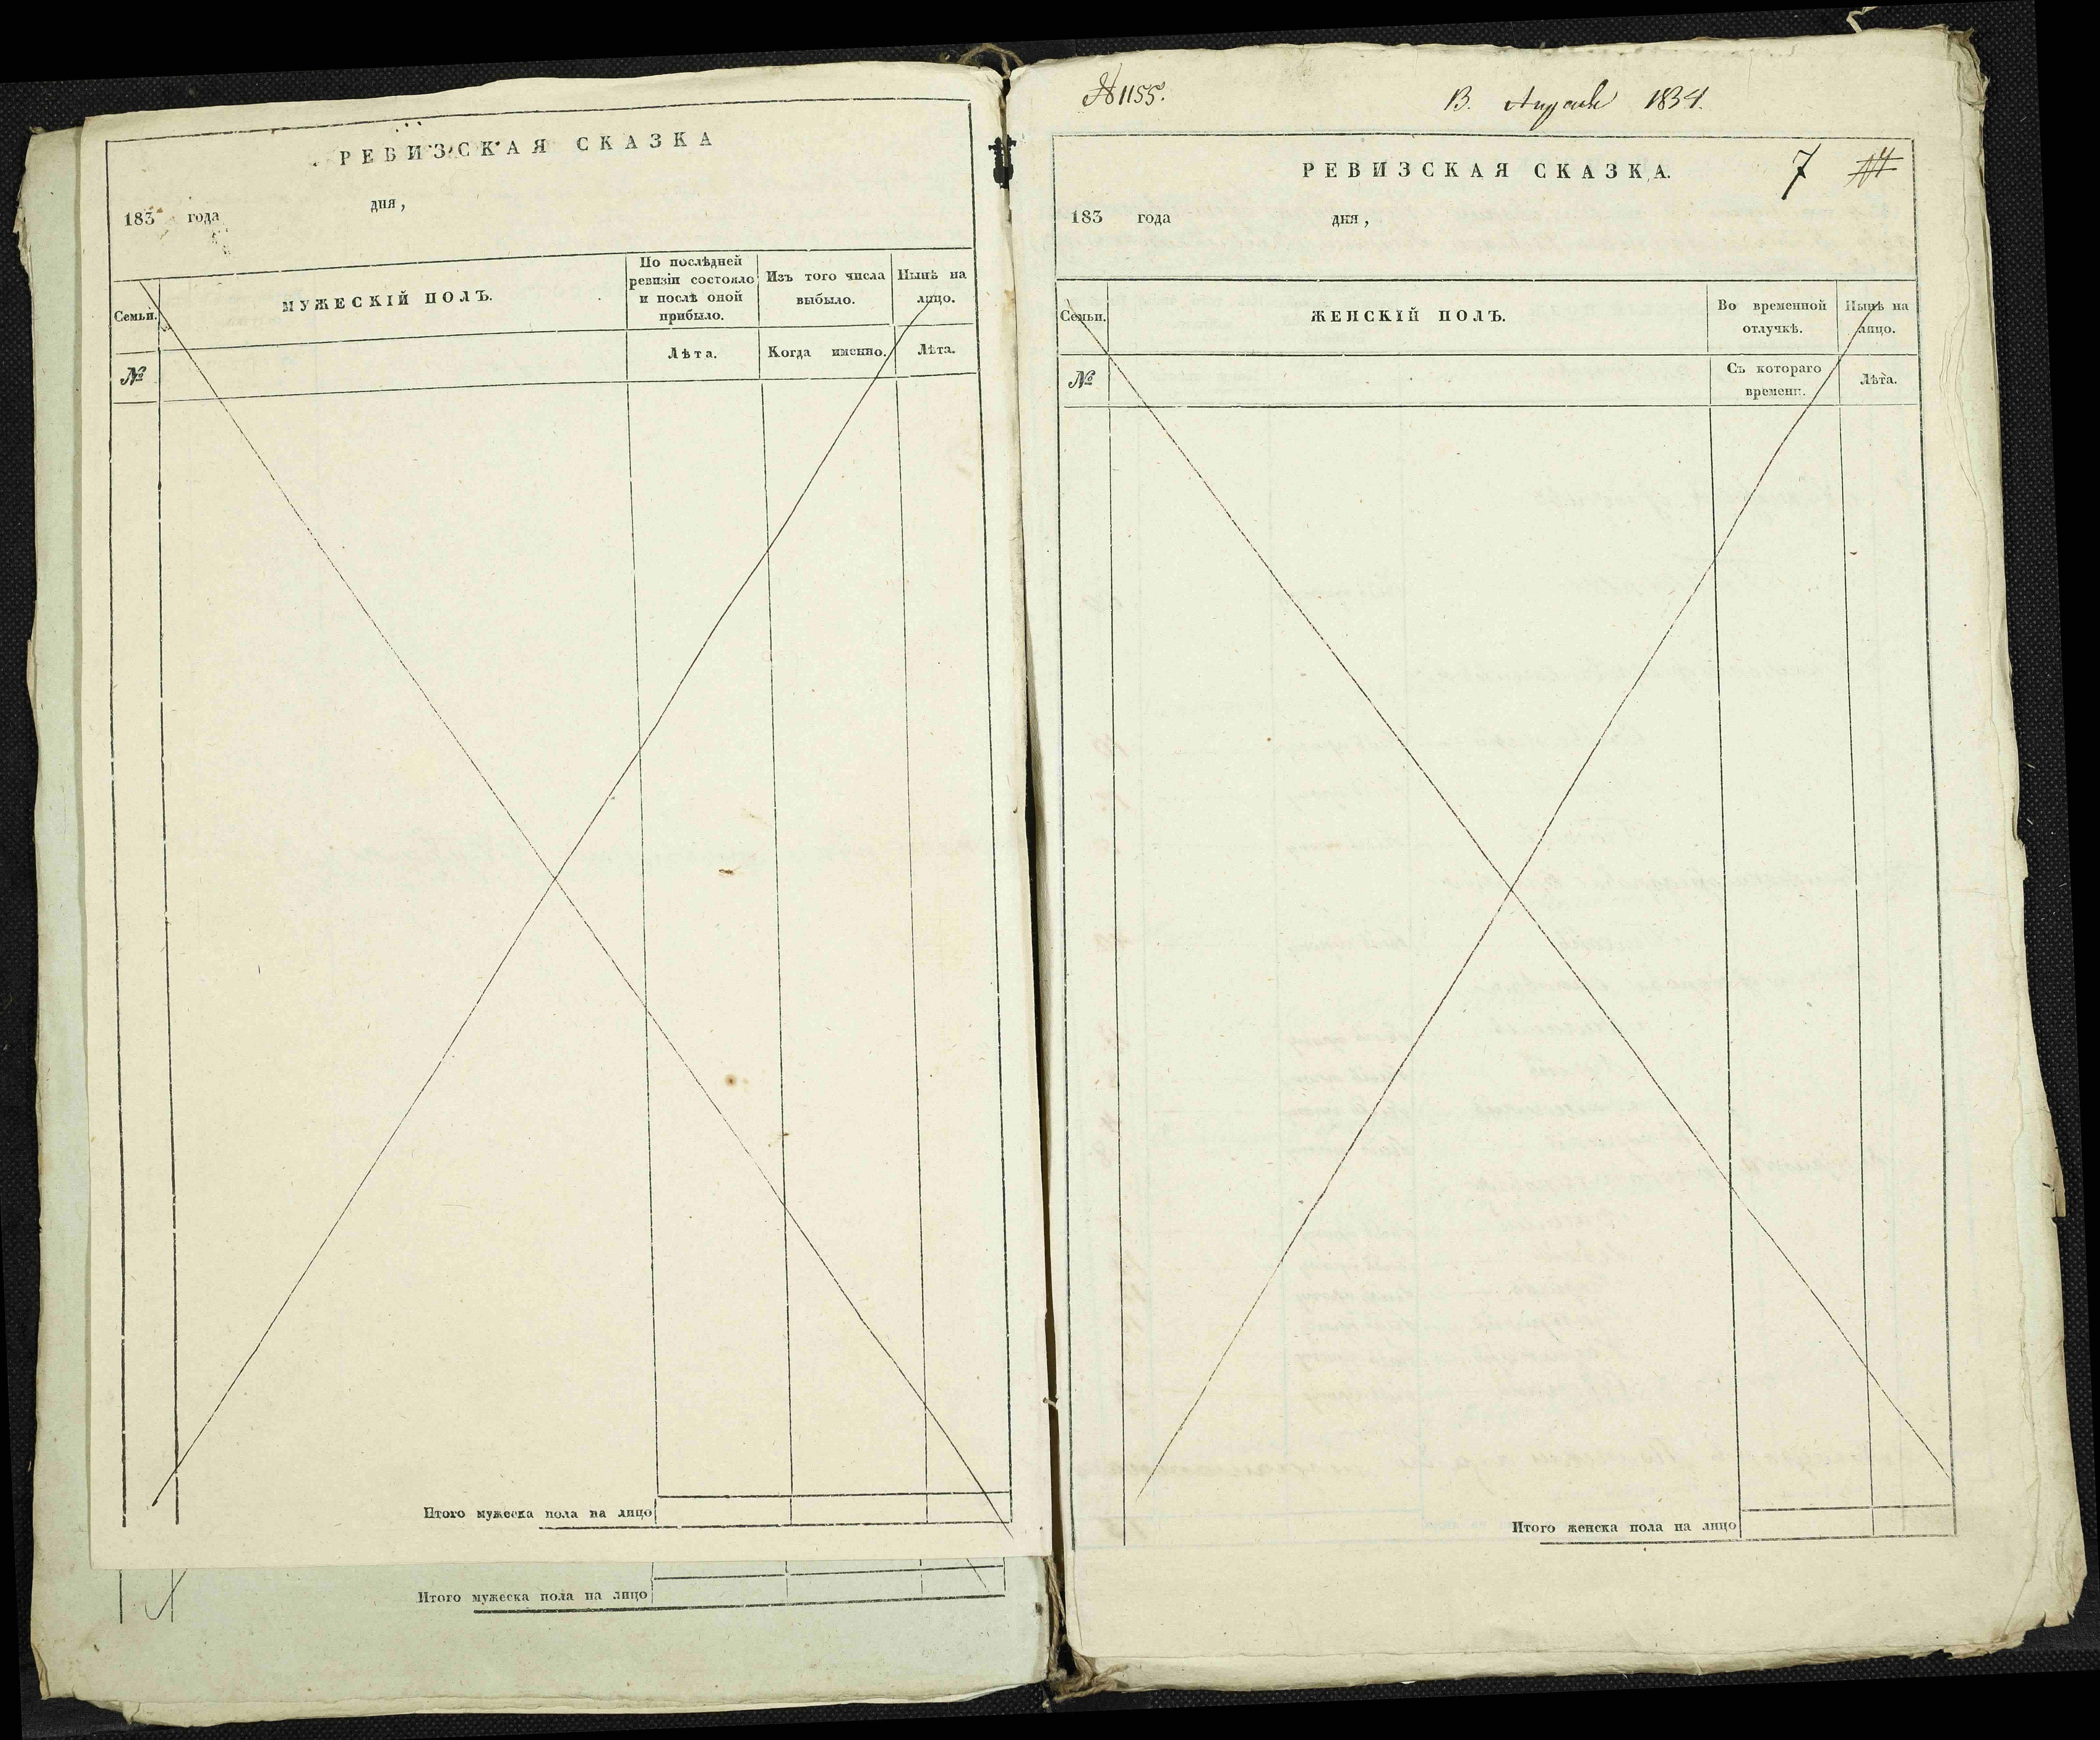 РЕВИЗСКАЯ СКАЗКА
183 года дня,
Семьи.
МУЖЕСКІЙ ПОЛЪ.
По послѣдней ревизіи состояло и послѣ оной прибыло.
Изъ того числа выбыло.
Нынѣ на лицо.
№
Лѣта.
Когда именно.
Лѣта.
Итого мужеска пола на лицо
Итого мужеска пола на лицо
№ 1155.
13. Апреля 1834.
РЕВИЗСКАЯ СКАЗКА.
7
183 года дня,
Семьи.
ЖЕНСКІЙ ПОЛЪ.
Во временной отлучкѣ.
Нынѣ на лицо.
№
Съ котораго времени.
Лѣта.
Итого женска пола на лицо